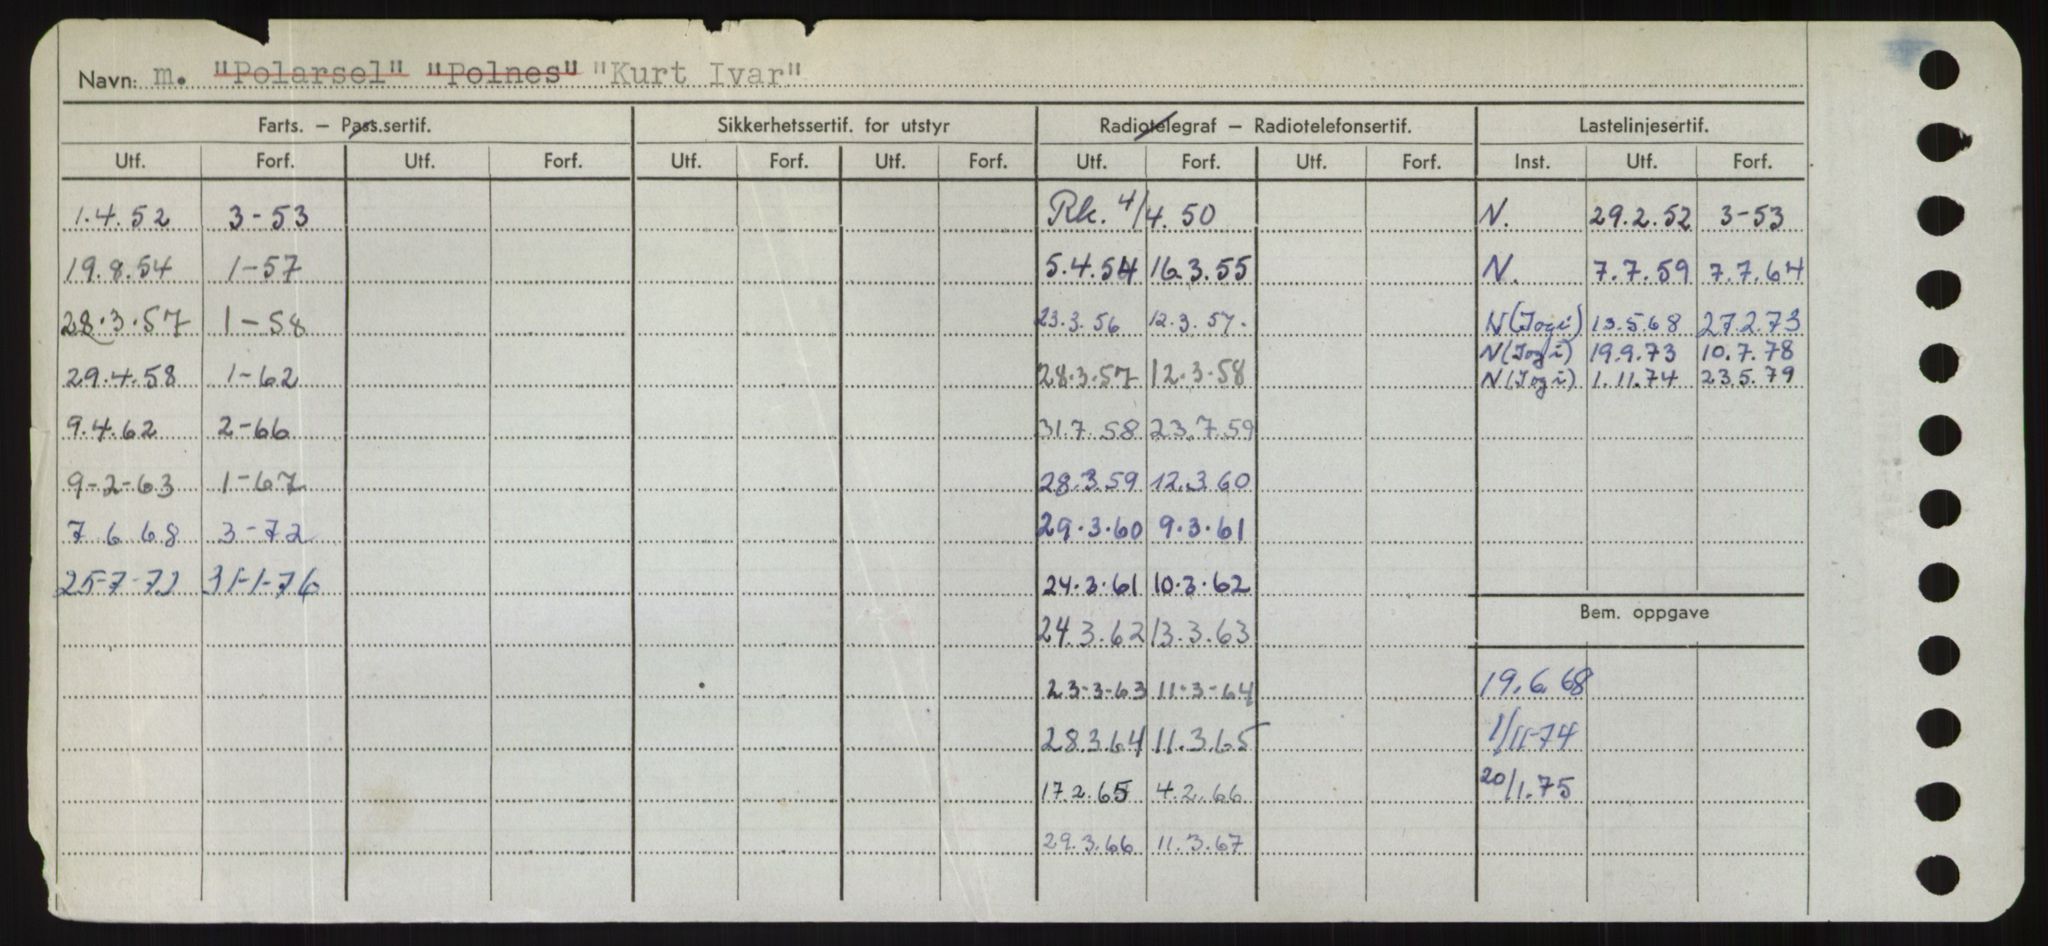 Navn: m. "Polarsel" "Polnes" "Kurt Ivar"
Farts. – Pass.sertif. Sikkerhetssertif. for utstyr Radiotelegraf – Radiotelefonsertif. Lastelinjesertif.
Utf. Forf. Utf. Forf. Utf. Forf. Utf. Forf. Utf. Forf. Utf. Forf. Inst. Utf. Forf.
1.4.52 3-53 Rk. 4/4.50 N. 29.2.52 3-53
19.8.54 1-57 5.4.54 16.3.55 N. 7.7.59 7.7.64
28.3.57 1-58 23.3.56 12.3.57. N(Jogi) 13.5.68 27.2.73
N(Jogi) 19.9.73 10.7.78
29.4.58 1-62 28.3.57 12.3.58 N(Jogi) 1.11.74 23.5.79
9.4.62 2-66 31.7.58 23.7.59
9-2-63 1-67 28.3.59 12.3.60
7 6 68 3-72 29.3.60 9.3.61
25-7-72 31-1-76 24.3.61 10.3.62
Bem. oppgave
24.3.62 13.3.63
23-3-63 11-3-64 19.6.68
28.3.64 11.3.65 1/11-74
17.2.65 4.2.66 20/1.75
29.3.66 11.3.67